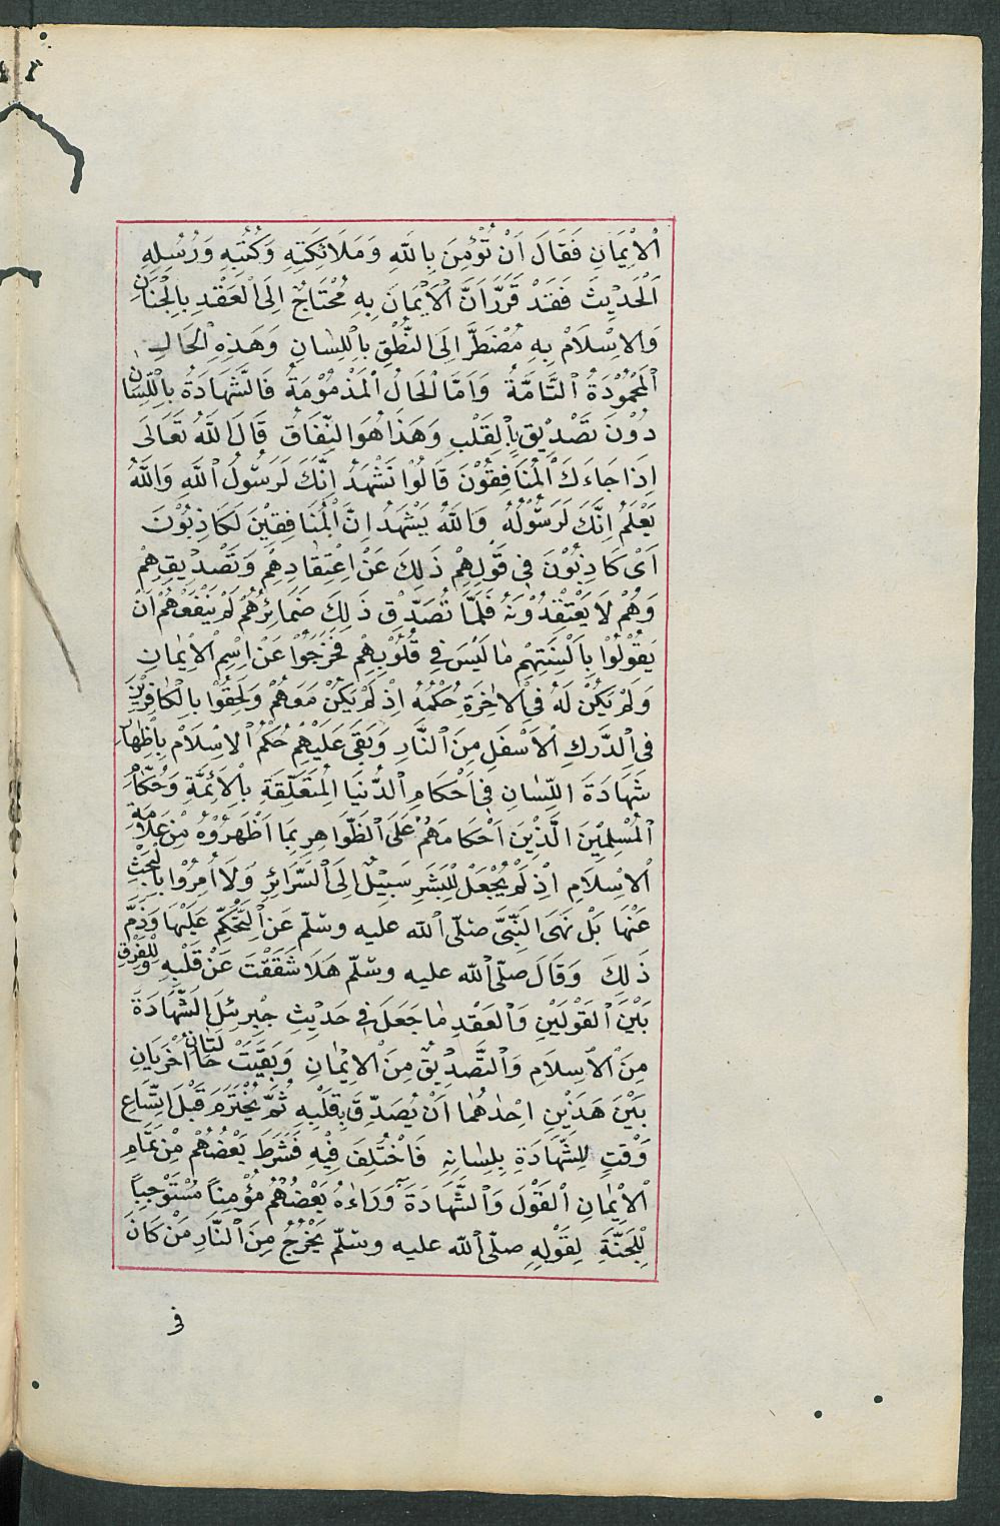 اْلاِيْمَانِ فَقَالَ اَنْ تُؤْمِنَ بِاللهِ وَمَلَائِكَتِهِ وَكُتُبِهِ وَرُسُلِهِ
اَلْحَدِيْثَ فَقَدْ قَرَّرَ اَنَّ اْلاِيْمَانَ بِهِ مُحْتَاجٌ اِلَى الْعَقْدِ بِالْجَنَانِ
وَالاِسْلَامُ بِهِ مُضْطَرٌّ اِلَى النُّطْقِ بِاللِّسَانِ وَهَذِهِ الْحَالِ
اْلمَحْمُوْدَةُ التَّامَّةُ وَاَمَّا الْحَالُ الْمَذْمُوْمَةُ فَالشَّهَادَةُ بِاللِّسَانِ
دُوْنَ تَصْدِيْقٍ بِالْقَلْبِ وَهَذَا هُوَ النِّفَاقُ قَالَ اللهُ تَعَالَى
اِذَا جَاءَكَ الْمُنَافِقُوْنَ قَالُوْا نَشْهَدُ اِنَّكَ لَرَسُوْلُ اللهِ وَاللهُ
يَعْلَمُ اِنَّكَ لَرَسُوْلُهُ وَاللهُ يَشْهَدُ اِنَّ الْمُنَافِقِيْنَ لَكَاذِبُوْنَ
اَىْ كَاذِبُوْنَ فِى قَوْلِهِمْ ذَلِكَ عَنْ اِعْتِقَادِهِمْ وَتَصْدِيْقِهِمْ
وَهُمْ لَا يَعْتَقِدُوْنَهُ فَلَمَّا تُصَدِّقْ ذَلِكَ ضَمَائِرُهُمْ لَمْ يَنْفَعْهُمْ اَنْ
يَقُوْلُوْا بِاَلْسِنَتِهِمْ مَا لَيْسَ فِى قُلُوْبِهِمْ فَخَرَجُوْا عَنْ اِسْمِ اْلاِيْمَانِ
وَلَمْ يَكُنْ لَهُ فِى اْلاَخِرَةِ حُكْمُهُ اِذْ لَمْ يَكُنْ مَعَهُمْ وَلَحِقُوْا بِالْكَافِرِيْنَ
فِى الدَّرَكِ اْلاَسْفَلِ مِنَ النَّارِ وَبَقِىَ عَلَيْهِمْ حُكْمُ اْلاِسْلَامْ بِاِظْهَارِ
شَهَادَةَ اللِّسَانِ فِى اَحْكَامِ الدُّنْيَا الْمُتَعَلِّقَةِ بِاْلاَئِمَّةِ وَحُكَّامِ
الْمُسْلِمِيْنَ الَّذِيْنَ اَحْكَامَهُمْ عَلَى الظَّوَاهِرِ بِمَا اَظْهَرُوْهُ مِنْ عَلَامَةِ
اْلاِسْلَامِ اِذْ لَمْ يُجْعَلْ لِلْبَشَرِ سَبِيْلٌ اِلَى السَّرَائِرِ وَلَا اُمِرُوْا بِالْبَحْثِ
عَنْهَا بَلْ نَهَى النَّبِىَّ صلّى الله عليه وسلّم عَنِ التَّحَكُّمِ عَلَيْهَا وَذَمَّ
ذَلِكَ وَقَالَ صلّى الله عليه وسلّم هَلَا شَقَقْتَ عَنْ قَلْبِهِ وَلِلْفَرْقِ
بَيْنَ الْقَوْلَيْنِ وَالْعَقْدِ مَا جَعَلَ فِى حَدِيْثِ جِبْرِئِلَ الشَّهَادَةَ
مِنَ اْلاِسْلَامِ وَالتَّصْدِيْقِ مِنَ اْلاِيْمَانِ وَبَقِيَتْ حَالَتَانِ اُخْرَيَانِ
بَيْنَ هَذَيْنِ اِحْدٰهُمَا اَنْ يُصَدِّقَ بِقَلْبِهِ ثُمَّ يُخْتَرَمَ قَبْلَ اتِّسَاعِ
وَقْتٍ لِلشَّهَادَةِ بِلِسَانِهِ فَاخْتُلِفَ فِيْهِ فَشَرَطَ بَعْضُهُمْ مِنْ تَمَامِ
اْلاِيْمَانِ الْقَوْلَ وَالشَّهَادَةَ وَرَاٰهُ بَعْضُهُمْ مُؤْمِنًا مُسْتَوْجِبًا
لِلْجَنَّةِ لِقَوْلِهِ صلّى الله عليه وسلّم يَخْرُجُ مِنَ النَّارِ مَنْ كَانَ
فى